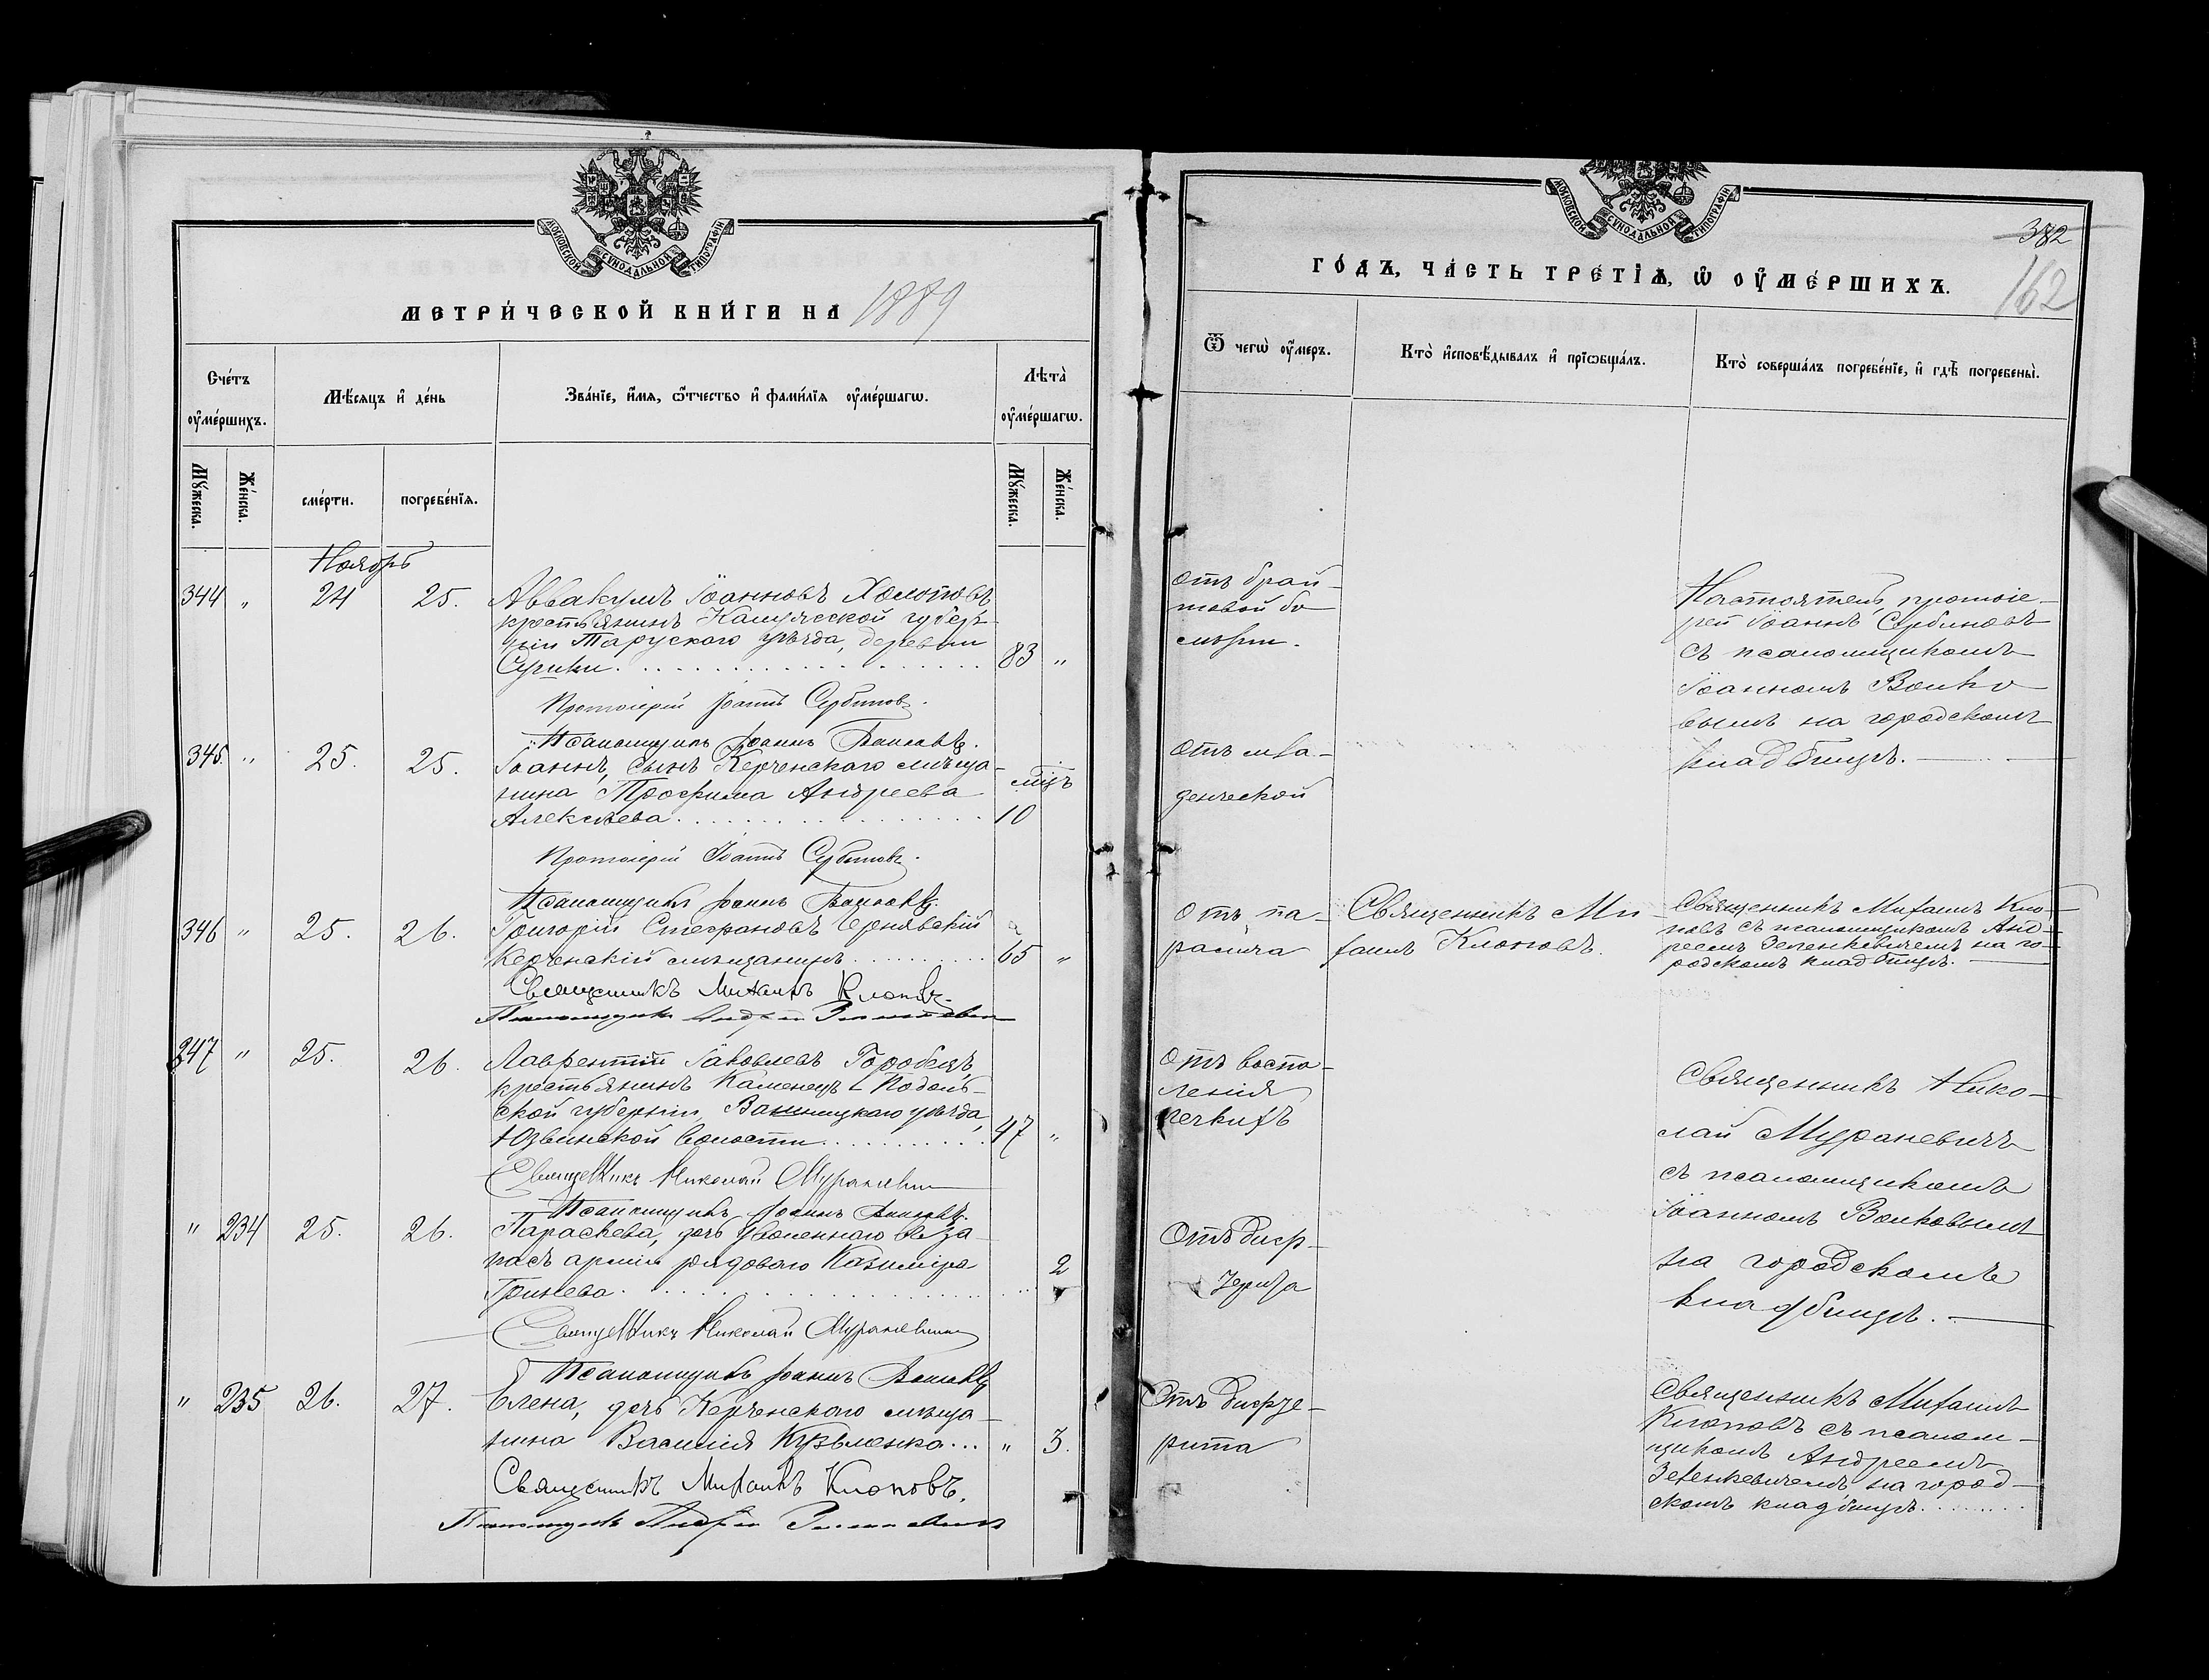 МОСКОВСКОЙ СѴНОДАЛЬНОЙ ТИПОГРАФІИ
МЕТРИ́ЧЕСКОЙ КНИ́ГИ НА 1889
Сче́тъ ᲂу҆ме́ршихъ.
Мѣ́сяцъ и҆ де́нь
Зва́нїе, и҆́мѧ, ѻ҆́тчество и҆ фами́лїѧ ᲂу҆ме́ршагѡ.
Лѣ́та ᲂу҆ме́ршагѡ.
Мꙋ́жеска.
Же́нска.
сме́рти.
погребе́нїѧ.
Мꙋ́жеска.
Же́нска.
Ноябрь
344 " 24 25. Аввакумъ Іоанновъ Холотовъ
крестьянинъ Калужской губер-
ніи Таруского уѣзда, деревни
83 "
Протоіерей Іоаннъ Сербиновъ.
Псаломщикъ Іоаннъ Волковъ.
345. " 25. 25. Іоаннъ, сынъ Керченскаго мѣща-
нина Трофима Андреева
мцъ
Алексѣева 10
Протоіерей Іоаннъ Сербиновъ.
Псаломщикъ Іоаннъ Волковъ.
346 " 25. 26. Григорій Стефановъ Чернявскій
Керченскій мѣщанинъ 65 "
Священникъ Михаилъ Клоповъ.
Псаломщикъ Андрей Зеленкевичъ
347 " 25. 26. Лаврентій Іаковлевъ Горобецъ,
крестьянинъ Каменецъ-Подоль-
ской губерніи, Винницкаго уѣзда,
Юзвинской волости 47 "
Священникъ Николай Мураневичъ
Псаломщикъ Іоаннъ Волковъ.
" 234 25. 26. Параскева, дочь уволеннаго въ за-
пасъ арміи рядоваго Казиміра
2
Гринева
Священникъ Николай Мураневичъ
Псаломщикъ Іоаннъ Волковъ
" 235 26. 27. Елена, дочь Керченскаго мѣща-
нина Василія Кузьменка... " 3.
Священникъ Михаилъ Клоповъ.
Псаломщикъ Андрей Зеленкевичъ
МОСКОВСКОЙ СѴНОДАЛЬНОЙ ТИПОГРАФІИ
382
ГО́ДЪ, ЧА́СТЬ ТРЕ́ТІѦ, Ѡ҆ ОУ҆МЕ́РШИХЪ.
162
Ѿ чегѡ̀ ᲂу҆́меръ.
Кто̀ и҆сповѣ́дывалъ и҆ прїѡбща́лъ.
Кто̀ соверша́лъ погребе́нїе, и҆ гдѣ̀ погребены̀.
Отъ брай-
товой бо
лѣзни.
Настоятель, протоіе-
рей Іоаннъ Сербиновъ
съ псаломщикомъ
Іоанномъ Волко
вымъ на городскомъ
кладбищѣ.
Отъ мла-
денческой
Отъ па-
ралича
Священникъ Ми
хаилъ Клоповъ.
Священникъ Михаилъ Кло-
повъ съ псаломщикомъ Анд-
реемъ Зеленкевичемъ на го-
родскомъ кладбищѣ.
Отъ воспа-
ленія
легкихъ
Священникъ Нико-
лай Мураневичъ
съ псаломщикомъ
Іоанномъ Волковымъ
на городскомъ
кладбищѣ.
Отъ диф-
терита
Отъ дифте-
рита
Священникъ Михаилъ
Клоповъ съ псалом-
щикомъ Андреемъ
Зеленкевичемъ на город-
скомъ кладбищѣ.